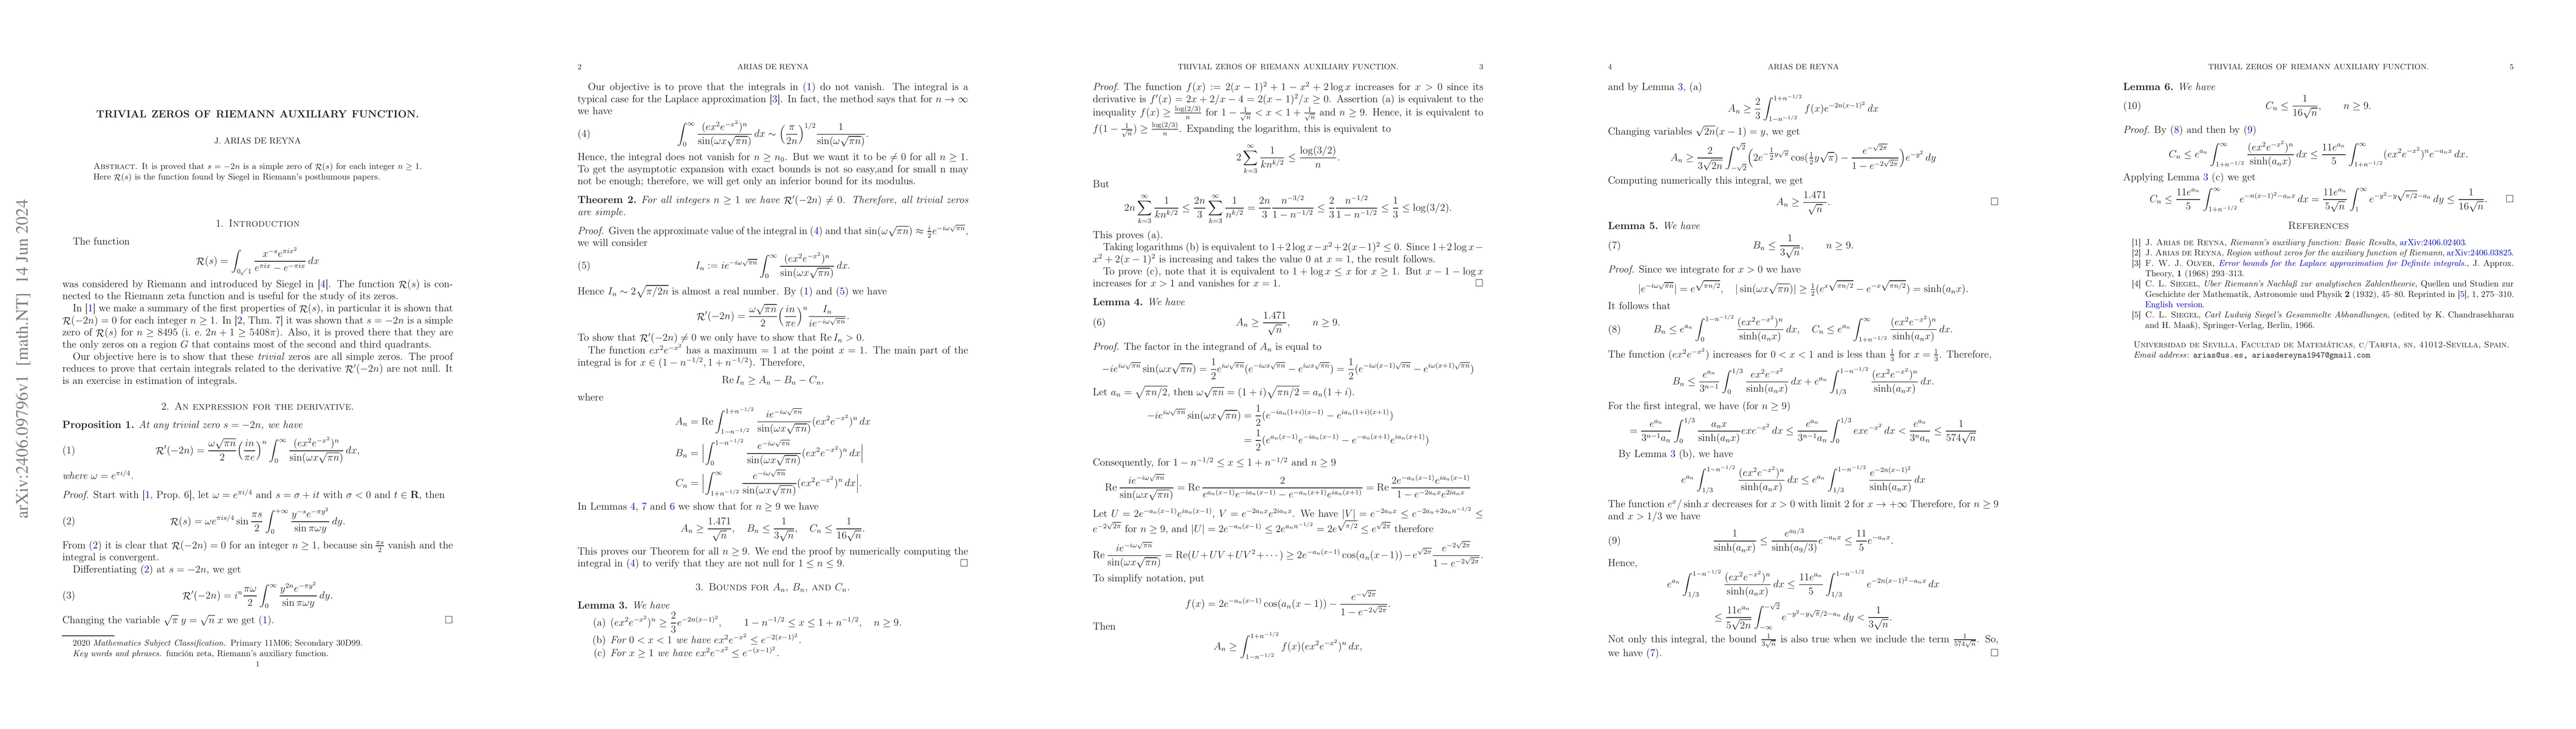 arXiv:2406.09796v1 [math.NT] 14 Jun 2024
TRIVIAL ZEROS OF RIEMANN AUXILIARY FUNCTION.
J. ARIAS DE REYNA
ABSTRACT. It is proved that s = −2n is a simple zero of ℛ(s) for each integer n ≥ 1.
Here ℛ(s) is the function found by Siegel in Riemann's posthumous papers.
1. INTRODUCTION
The function
ℛ(s) = ∫_{0↙1} x^{−s}e^{πix²} / (e^{πix} − e^{−πix}) dx
was considered by Riemann and introduced by Siegel in [4]. The function ℛ(s) is con-
nected to the Riemann zeta function and is useful for the study of its zeros.
In [1] we make a summary of the first properties of ℛ(s), in particular it is shown that
ℛ(−2n) = 0 for each integer n ≥ 1. In [2, Thm. 7] it was shown that s = −2n is a simple
zero of ℛ(s) for n ≥ 8495 (i. e. 2n + 1 ≥ 5408π). Also, it is proved there that they are
the only zeros on a region G that contains most of the second and third quadrants.
Our objective here is to show that these trivial zeros are all simple zeros. The proof
reduces to prove that certain integrals related to the derivative ℛ′(−2n) are not null. It
is an exercise in estimation of integrals.
2. AN EXPRESSION FOR THE DERIVATIVE.
Proposition 1. At any trivial zero s = −2n, we have
(1) ℛ′(−2n) = (ω√(πn)/2) (in/(πe))^n ∫_0^∞ (ex²e^{−x²})^n / sin(ωx√(πn)) dx,
where ω = e^{πi/4}.
Proof. Start with [1, Prop. 6], let ω = e^{πi/4} and s = σ + it with σ < 0 and t ∈ R, then
(2) ℛ(s) = ωe^{πis/4} sin (πs/2) ∫_0^{+∞} y^{−s}e^{−πy²} / sin πωy dy.
From (2) it is clear that ℛ(−2n) = 0 for an integer n ≥ 1, because sin πs/2 vanish and the
integral is convergent.
Differentiating (2) at s = −2n, we get
(3) ℛ′(−2n) = i^n (πω/2) ∫_0^∞ y^{2n}e^{−πy²} / sin πωy dy.
Changing the variable √π y = √n x we get (1). □
2020 Mathematics Subject Classification. Primary 11M06; Secondary 30D99.
Key words and phrases. función zeta, Riemann's auxiliary function.
1
2 ARIAS DE REYNA
Our objective is to prove that the integrals in (1) do not vanish. The integral is a
typical case for the Laplace approximation [3]. In fact, the method says that for n → ∞
we have
(4) ∫_0^∞ (ex²e^{−x²})^n / sin(ωx√(πn)) dx ∼ (π/2n)^{1/2} 1/sin(ω√(πn)).
Hence, the integral does not vanish for n ≥ n₀. But we want it to be ≠ 0 for all n ≥ 1.
To get the asymptotic expansion with exact bounds is not so easy,and for small n may
not be enough; therefore, we will get only an inferior bound for its modulus.
Theorem 2. For all integers n ≥ 1 we have ℛ′(−2n) ≠ 0. Therefore, all trivial zeros
are simple.
Proof. Given the approximate value of the integral in (4) and that sin(ω√(πn)) ≈ (i/2)e^{−iω√(πn)},
we will consider
(5) I_n := ie^{−iω√(πn)} ∫_0^∞ (ex²e^{−x²})^n / sin(ωx√(πn)) dx.
Hence I_n ∼ 2√(π/2n) is almost a real number. By (1) and (5) we have
ℛ′(−2n) = (ω√(πn)/2) (in/(πe))^n I_n / (ie^{−iω√(πn)}).
To show that ℛ′(−2n) ≠ 0 we only have to show that Re I_n > 0.
The function ex²e^{−x²} has a maximum = 1 at the point x = 1. The main part of the
integral is for x ∈ (1 − n^{−1/2}, 1 + n^{−1/2}). Therefore,
Re I_n ≥ A_n − B_n − C_n,
where
A_n = Re ∫_{1−n^{−1/2}}^{1+n^{−1/2}} ie^{−iω√(πn)} / sin(ωx√(πn)) (ex²e^{−x²})^n dx
B_n = |∫_0^{1−n^{−1/2}} e^{−iω√(πn)} / sin(ωx√(πn)) (ex²e^{−x²})^n dx|
C_n = |∫_{1+n^{−1/2}}^∞ e^{−iω√(πn)} / sin(ωx√(πn)) (ex²e^{−x²})^n dx|.
In Lemmas 4, 7 and 6 we show that for n ≥ 9 we have
A_n ≥ 1.471/√n, B_n ≤ 1/(3√n), C_n ≤ 1/(16√n).
This proves our Theorem for all n ≥ 9. We end the proof by numerically computing the
integral in (4) to verify that they are not null for 1 ≤ n ≤ 9. □
3. BOUNDS FOR A_n, B_n, AND C_n.
Lemma 3. We have
(a) (ex²e^{−x²})^n ≥ (2/3)e^{−2n(x−1)²}, 1 − n^{−1/2} ≤ x ≤ 1 + n^{−1/2}, n ≥ 9.
(b) For 0 < x < 1 we have ex²e^{−x²} ≤ e^{−2(x−1)²}.
(c) For x ≥ 1 we have ex²e^{−x²} ≤ e^{−(x−1)²}.
TRIVIAL ZEROS OF RIEMANN AUXILIARY FUNCTION. 3
Proof. The function f(x) := 2(x − 1)² + 1 − x² + 2 log x increases for x > 0 since its
derivative is f′(x) = 2x + 2/x − 4 = 2(x − 1)²/x ≥ 0. Assertion (a) is equivalent to the
inequality f(x) ≥ log(2/3)/n for 1 − 1/√n < x < 1 + 1/√n and n ≥ 9. Hence, it is equivalent to
f(1 − 1/√n) ≥ log(2/3)/n. Expanding the logarithm, this is equivalent to
2 ∑_{k=3}^∞ 1/(kn^{k/2}) ≤ log(3/2)/n.
But
2n ∑_{k=3}^∞ 1/(kn^{k/2}) ≤ (2n/3) ∑_{k=3}^∞ 1/n^{k/2} = (2n/3) n^{−3/2}/(1 − n^{−1/2}) ≤ (2/3) n^{−1/2}/(1 − n^{−1/2}) ≤ 1/3 ≤ log(3/2).
This proves (a).
Taking logarithms (b) is equivalent to 1+2 log x−x²+2(x−1)² ≤ 0. Since 1+2 log x−
x² + 2(x − 1)² is increasing and takes the value 0 at x = 1, the result follows.
To prove (c), note that it is equivalent to 1 + log x ≤ x for x ≥ 1. But x − 1 − log x
increases for x > 1 and vanishes for x = 1. □
Lemma 4. We have
(6) A_n ≥ 1.471/√n, n ≥ 9.
Proof. The factor in the integrand of A_n is equal to
−ie^{iω√(πn)} sin(ωx√(πn)) = (1/2)e^{iω√(πn)}(e^{−iωx√(πn)} − e^{iωx√(πn)}) = (1/2)(e^{−iω(x−1)√(πn)} − e^{iω(x+1)√(πn)})
Let a_n = √(πn/2), then ω√(πn) = (1 + i)√(πn/2) = a_n(1 + i).
−ie^{iω√(πn)} sin(ωx√(πn)) = (1/2)(e^{−ia_n(1+i)(x−1)} − e^{ia_n(1+i)(x+1)})
= (1/2)(e^{a_n(x−1)}e^{−ia_n(x−1)} − e^{−a_n(x+1)}e^{ia_n(x+1)})
Consequently, for 1 − n^{−1/2} ≤ x ≤ 1 + n^{−1/2} and n ≥ 9
Re ie^{−iω√(πn)} / sin(ωx√(πn)) = Re 2 / (e^{a_n(x−1)}e^{−ia_n(x−1)} − e^{−a_n(x+1)}e^{ia_n(x+1)}) = Re 2e^{−a_n(x−1)}e^{ia_n(x−1)} / (1 − e^{−2a_nx}e^{2ia_nx})
Let U = 2e^{−a_n(x−1)}e^{ia_n(x−1)}, V = e^{−2a_nx}e^{2ia_nx}. We have |V| = e^{−2a_nx} ≤ e^{−2a_n+2a_nn^{−1/2}} ≤
e^{−2√(2π)} for n ≥ 9, and |U| = 2e^{−a_n(x−1)} ≤ 2e^{a_nn^{−1/2}} = 2e^{√(π/2)} ≤ e^{√(2π)} therefore
Re ie^{−iω√(πn)} / sin(ωx√(πn)) = Re(U +UV +UV² +· · · ) ≥ 2e^{−a_n(x−1)} cos(a_n(x−1))−e^{√(2π)} e^{−2√(2π)} / (1 − e^{−2√(2π)}).
To simplify notation, put
f(x) = 2e^{−a_n(x−1)} cos(a_n(x − 1)) − e^{−√(2π)} / (1 − e^{−2√(2π)}).
Then
A_n ≥ ∫_{1−n^{−1/2}}^{1+n^{−1/2}} f(x)(ex²e^{−x²})^n dx,
4 ARIAS DE REYNA
and by Lemma 3, (a)
A_n ≥ (2/3) ∫_{1−n^{−1/2}}^{1+n^{−1/2}} f(x)e^{−2n(x−1)²} dx
Changing variables √(2n)(x − 1) = y, we get
A_n ≥ 2/(3√(2n)) ∫_{−√2}^{√2} (2e^{−½y√π} cos(½y√π) − e^{−√(2π)} / (1 − e^{−2√(2π)})) e^{−y²} dy
Computing numerically this integral, we get
A_n ≥ 1.471/√n. □
Lemma 5. We have
(7) B_n ≤ 1/(3√n), n ≥ 9.
Proof. Since we integrate for x > 0 we have
|e^{−iω√(πn)}| = e^{√(πn/2)}, |sin(ωx√(πn))| ≥ ½(e^{x√(πn/2)} − e^{−x√(πn/2)}) = sinh(a_nx).
It follows that
(8) B_n ≤ e^{a_n} ∫_0^{1−n^{−1/2}} (ex²e^{−x²})^n / sinh(a_nx) dx, C_n ≤ e^{a_n} ∫_{1+n^{−1/2}}^∞ (ex²e^{−x²})^n / sinh(a_nx) dx.
The function (ex²e^{−x²}) increases for 0 < x < 1 and is less than 1/3 for x = 1/3. Therefore,
B_n ≤ (e^{a_n}/3^{n−1}) ∫_0^{1/3} ex²e^{−x²} / sinh(a_nx) dx + e^{a_n} ∫_{1/3}^{1−n^{−1/2}} (ex²e^{−x²})^n / sinh(a_nx) dx.
For the first integral, we have (for n ≥ 9)
= e^{a_n}/(3^{n−1}a_n) ∫_0^{1/3} (a_nx / sinh(a_nx)) exe^{−x²} dx ≤ e^{a_n}/(3^{n−1}a_n) ∫_0^{1/3} exe^{−x²} dx < e^{a_n}/(3^na_n) ≤ 1/(574√n)
By Lemma 3 (b), we have
e^{a_n} ∫_{1/3}^{1−n^{−1/2}} (ex²e^{−x²})^n / sinh(a_nx) dx ≤ e^{a_n} ∫_{1/3}^{1−n^{−1/2}} e^{−2n(x−1)²} / sinh(a_nx) dx
The function e^x/ sinh x decreases for x > 0 with limit 2 for x → +∞ Therefore, for n ≥ 9
and x > 1/3 we have
(9) 1/sinh(a_nx) ≤ e^{a₉/3}/sinh(a₉/3) e^{−a_nx} ≤ (11/5) e^{−a_nx}.
Hence,
e^{a_n} ∫_{1/3}^{1−n^{−1/2}} (ex²e^{−x²})^n / sinh(a_nx) dx ≤ (11e^{a_n}/5) ∫_{1/3}^{1−n^{−1/2}} e^{−2n(x−1)²−a_nx} dx
≤ 11e^{a_n}/(5√(2n)) ∫_{−∞}^{−√2} e^{−y²−y√π/2−a_n} dy < 1/(3√n).
Not only this integral, the bound 1/(3√n) is also true when we include the term 1/(574√n). So,
we have (7). □
TRIVIAL ZEROS OF RIEMANN AUXILIARY FUNCTION. 5
Lemma 6. We have
(10) C_n ≤ 1/(16√n), n ≥ 9.
Proof. By (8) and then by (9)
C_n ≤ e^{a_n} ∫_{1+n^{−1/2}}^∞ (ex²e^{−x²})^n / sinh(a_nx) dx ≤ (11e^{a_n}/5) ∫_{1+n^{−1/2}}^∞ (ex²e^{−x²})^n e^{−a_nx} dx.
Applying Lemma 3 (c) we get
C_n ≤ (11e^{a_n}/5) ∫_{1+n^{−1/2}}^∞ e^{−n(x−1)²−a_nx} dx = 11e^{a_n}/(5√n) ∫_1^∞ e^{−y²−y√(π/2)−a_n} dy ≤ 1/(16√n). □
REFERENCES
[1] J. ARIAS DE REYNA, Riemann's auxiliary function: Basic Results, arXiv:2406.02403.
[2] J. ARIAS DE REYNA, Region without zeros for the auxiliary function of Riemann, arXiv:2406.03825.
[3] F. W. J. OLVER, Error bounds for the Laplace approximation for Definite integrals., J. Approx.
Theory, 1 (1968) 293–313.
[4] C. L. SIEGEL, Uber Riemann's Nachlaß zur analytischen Zahlentheorie, Quellen und Studien zur
Geschichte der Mathematik, Astronomie und Physik 2 (1932), 45–80. Reprinted in [5], 1, 275–310.
English version.
[5] C. L. SIEGEL, Carl Ludwig Siegel's Gesammelte Abhandlungen, (edited by K. Chandrasekharan
and H. Maaß), Springer-Verlag, Berlin, 1966.
UNIVERSIDAD DE SEVILLA, FACULTAD DE MATEMÁTICAS, C/TARFIA, SN, 41012-SEVILLA, SPAIN.
Email address: arias@us.es, ariasdereyna1947@gmail.com